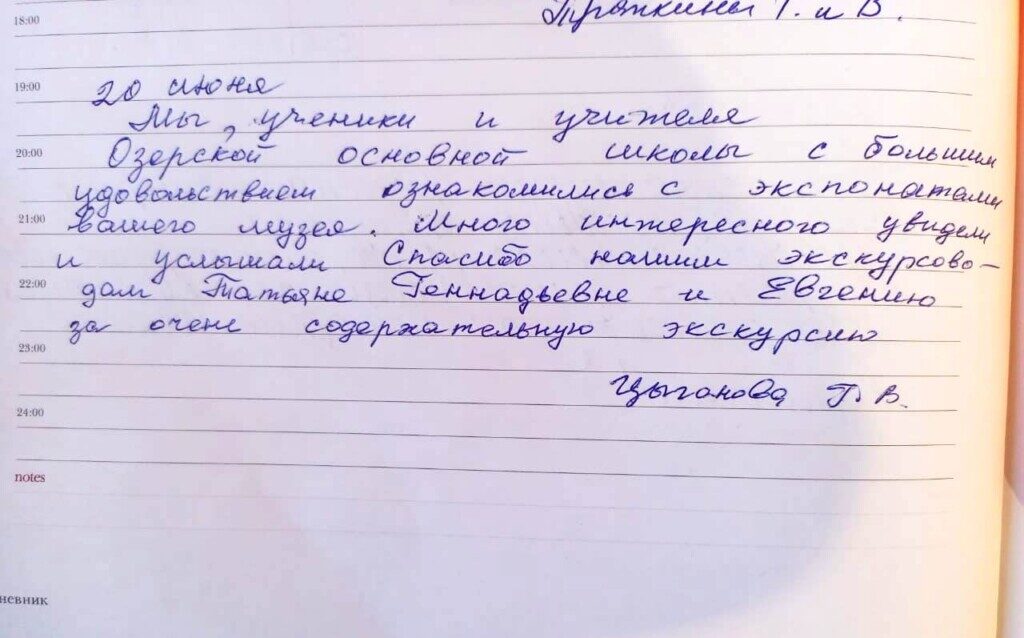 18:00
Т. и В.
19:00
20 июня
Мы, ученики и учителя
20:00
Озерской основной школы с большим
удовольствием ознакомились с экспонатами
21:00
вашего музея. Много интересного увидели
и услышали Спасибо нашим экскурсово-
22:00
дам Татьяне Геннадьевне и Евгению
за очень содержательную экскурсию
23:00
Цыганова Г. В.
24:00
notes
невник